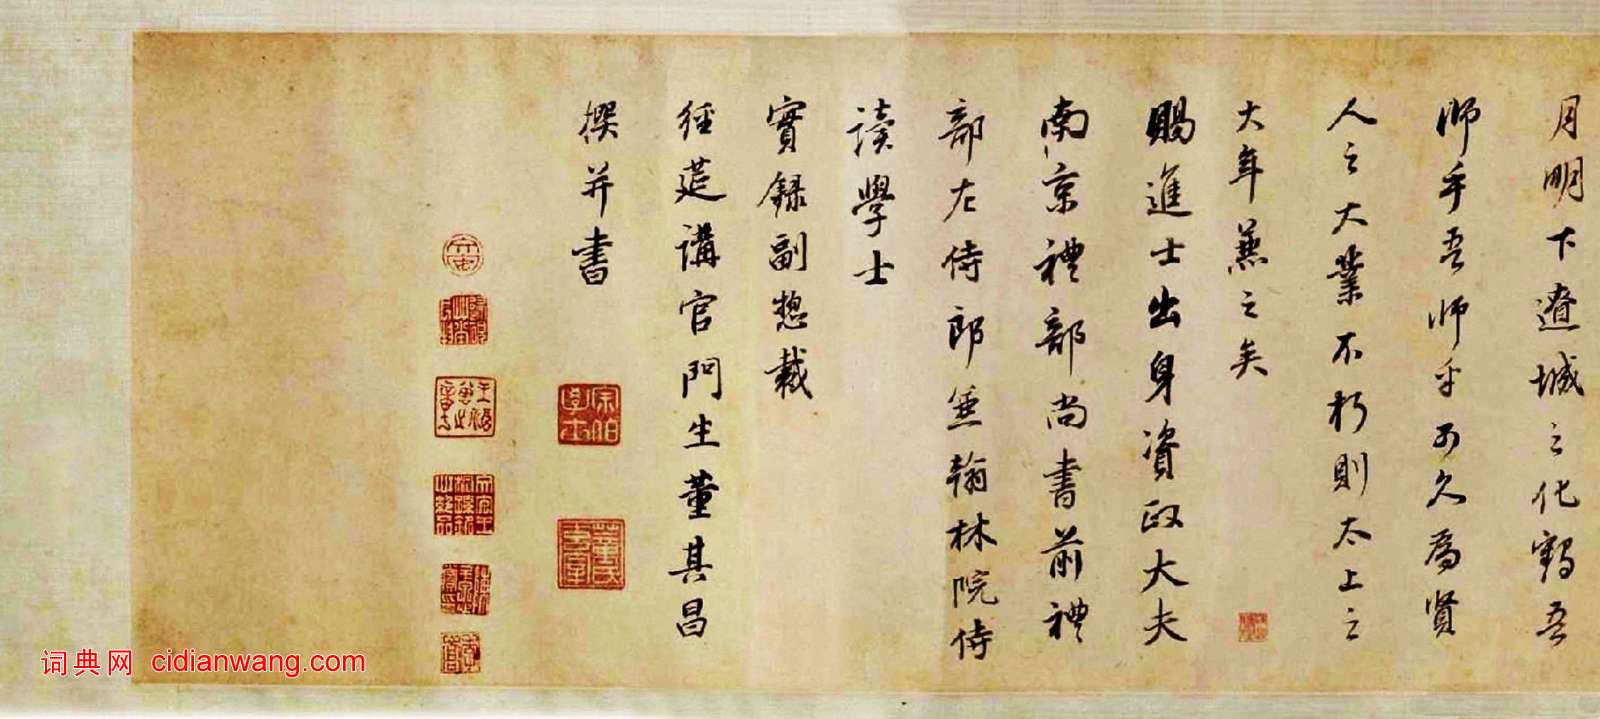 月明下遼城之化鶴吾
師乎吾師乎可久為賢
人之大業不朽則太上之
大年兼之矣
賜進士出身資政大夫
南京禮部尚書前禮
部左侍郎兼翰林院侍
讀學士
實録副總裁
經筵講官門生董其昌
撰并書
宗伯學士
董氏玄宰
词典网 cidianwang.com